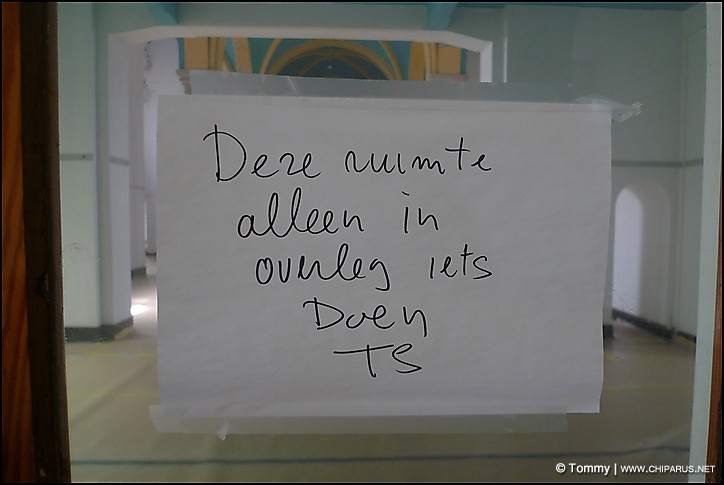 Deze ruimte
alleen in
overleg iets
Doen
TS
© Tommy | www.chiparus.net